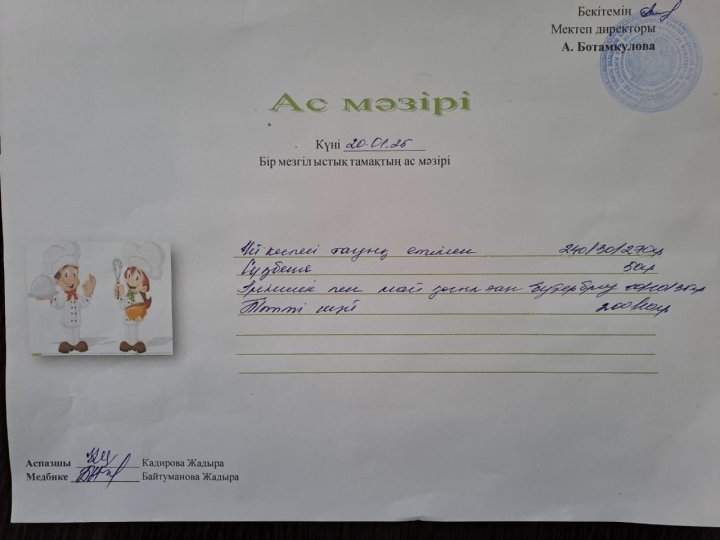 Бекітемін
Мектеп директоры
А. Ботамкулова
Ас мәзірі
Күні 20.01.25
Бір мезгіл ыстық тамақтың ас мәзірі
Үй кеспесі тауық етімен 240/30/270гр
Сүзбеше 50гр
Ірімшік пен май қосылған бутерброд
Тәтті шәй
Аспазшы Кадирова Жадыра
Медбике Байтуманова Жадыра